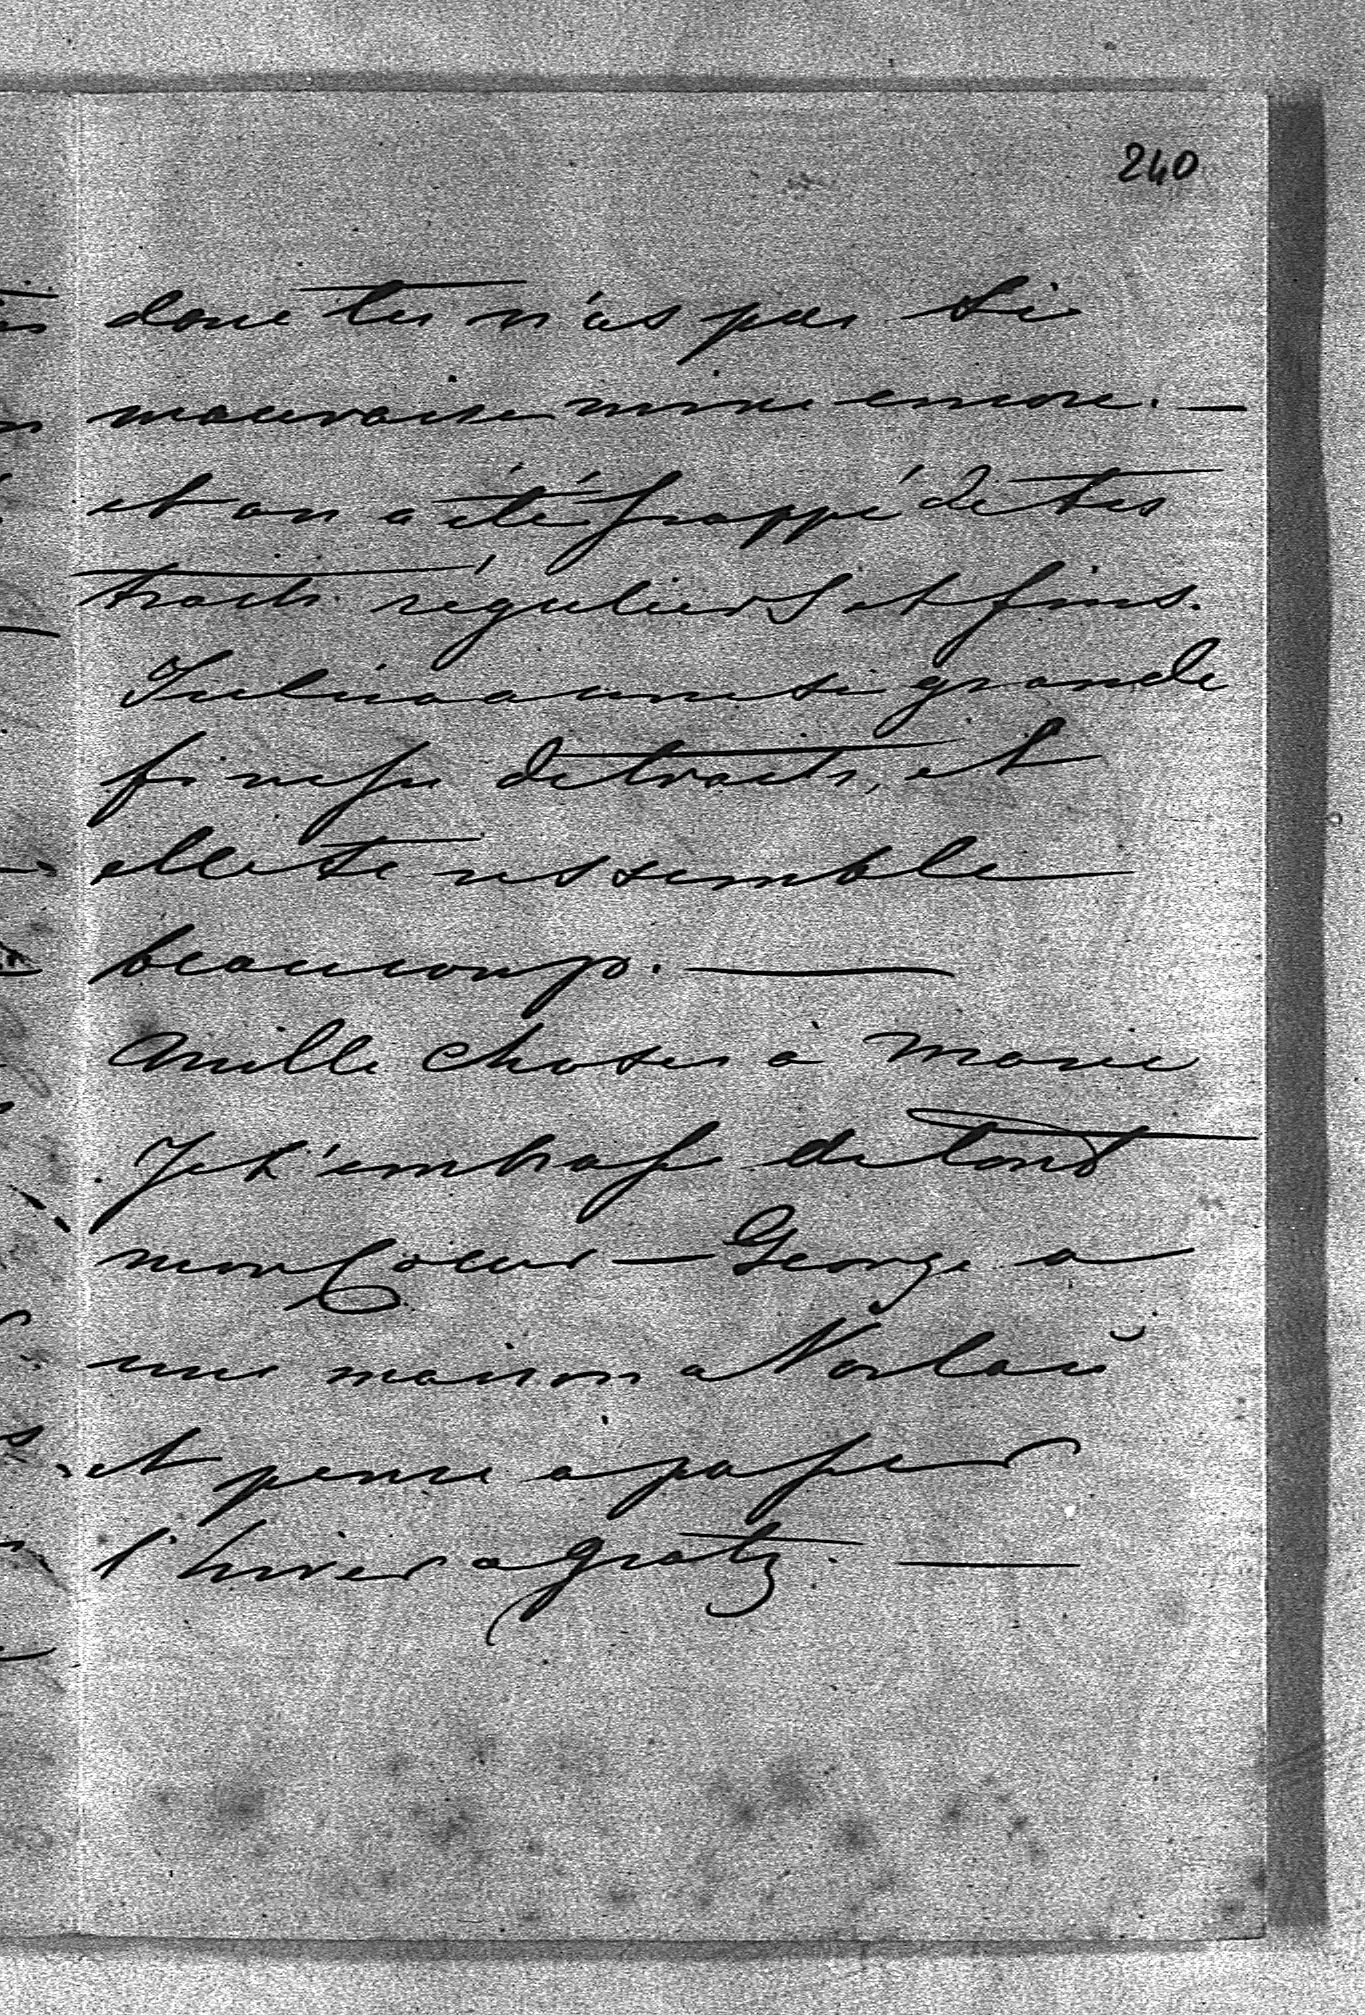 240
donc tu n'as pas si
mauvaise mine encore. —
et on a été frappé de tes
traits réguliers et fins.
Julina a une si grande
finesse de traits, et
elle te ressemble
beaucoup. —
Mille choses à Marie
Je t'embrasse de tout
mon Coeur — George a
une maison a
et pense a passer
l'hiver a Gratz. —